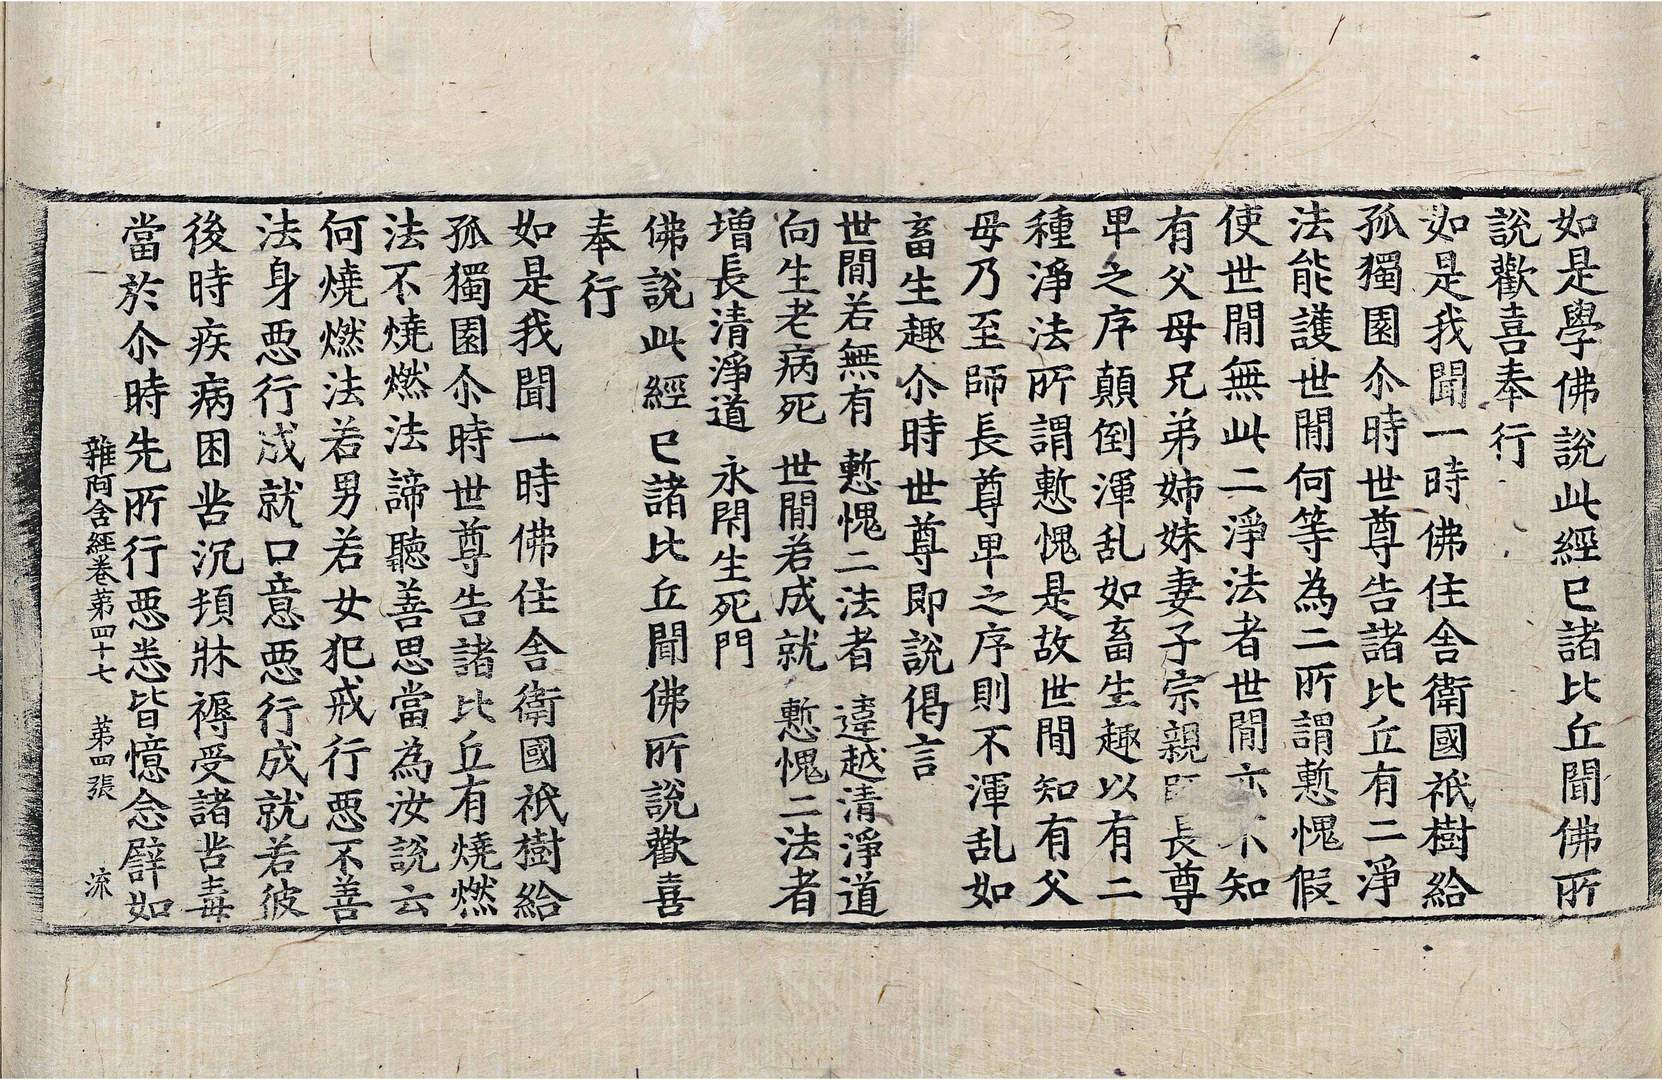 如是學佛說此經已諸比丘聞佛所
說歡喜奉行
如是我聞一時佛住舍衛國祇樹給
孤獨園尒時世尊告諸比丘有二淨
法能護世間何等為二所謂慙愧假
使世間無此二淨法者世間亦不知
有父母兄弟姉妹妻子宗親師長尊
卑之序顛倒渾乱如畜生趣以有二
種淨法所謂慙愧是故世間知有父
母乃至師長尊卑之序則不渾乱如
畜生趣尒時世尊即說偈言
世間若無有 慙愧二法者 違越清淨道
向生老病死 世間若成就 慙愧二法者
增長清淨道 永閇生死門
佛說此經已諸比丘聞佛所說歡喜
奉行
如是我聞一時佛住舍衛國祇樹給
孤獨園尒時世尊告諸比丘有燒燃
法不燒燃法諦聽善思當為汝說云
何燒燃法若男若女犯戒行惡不善
法身惡行成就口意惡行成就若彼
後時疾病困苦沉頓牀褥受諸苦毒
當於尒時先所行惡悉皆憶念譬如
雜阿含經卷苐四十七 苐四張 流